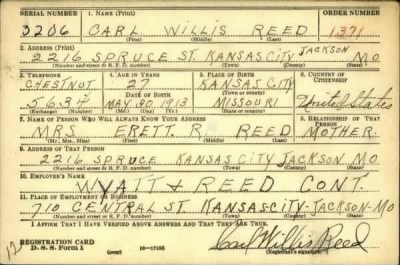 SERIAL NUMBER 1. NAME (Print) ORDER NUMBER
3206 CARL WILLIS REED 1371
(First) (Middle) (Last)
2. ADDRESS (Print)
2216 SPRUCE ST. KANSAS CITY JACKSON MO
(Number and street or R. F. D. number) (Town) (County) (State)
3. TELEPHONE 4. AGE IN YEARS 5. PLACE OF BIRTH 6. COUNTRY OF CITIZENSHIP
CHESTNUT 27 KANSAS CITY
DATE OF BIRTH (Town or county)
5634 MAY 30 1913 MISSOURI United States
(Exchange) (Number) (Mo.) (Day) (Yr.) (State or country)
7. NAME OF PERSON WHO WILL ALWAYS KNOW YOUR ADDRESS 8. RELATIONSHIP OF THAT PERSON
MRS ERETT R. REED MOTHER
(Mr., Mrs., Miss) (First) (Middle) (Last)
9. ADDRESS OF THAT PERSON
2216 SPRUCE KANSAS CITY JACKSON MO.
(Number and street or R. F. D. number) (Town) (County) (State)
10. EMPLOYER'S NAME
WYATT & REED CONT.
11. PLACE OF EMPLOYMENT OR BUSINESS
710 CENTRAL ST KANSAS-CITY-JACKSON-MO
(Number and street or R. F. D. number) (Town) (County) (State)
I AFFIRM THAT I HAVE VERIFIED ABOVE ANSWERS AND THAT THEY ARE TRUE.
REGISTRATION CARD
D. S. S. Form 1 (over) Carl Willis Reed
(Registrant's signature)